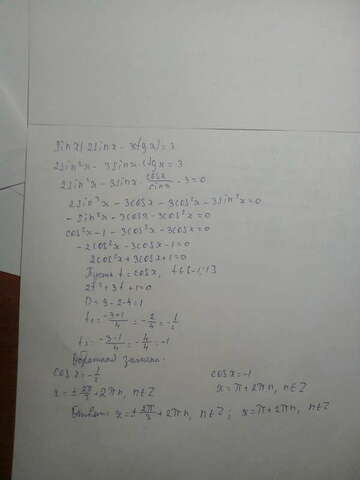 sinx(2sinx - 3ctgx)=3
2sin²x - 3sinx·ctgx = 3
2sin²x - 3sinx· cosx/sinx - 3=0
2sin²x - 3cosx - 3cos²x - 3sin²x=0
- sin²x - 3cosx - 3cos²x=0
cos²x - 1 - 3cos²x - 3cosx=0
- 2cos²x - 3cosx - 1=0
2cos²x + 3cosx + 1=0
Пусть t = cosx, t∈[-1;1]
2t² + 3t + 1=0
D = 9 - 2·4=1
t₁= -3+1/4 = -2/4 = -1/2
t₂= -3-1/4 = -4/4 = -1
Обратная замена:
cosx=-1/2 cosx=-1
x=± 2π/3 +2πn, n∈Z x=π+2πn, n∈Z
Ответ: x=± 2π/3 +2πn, n∈Z; x=π+2πn, n∈Z